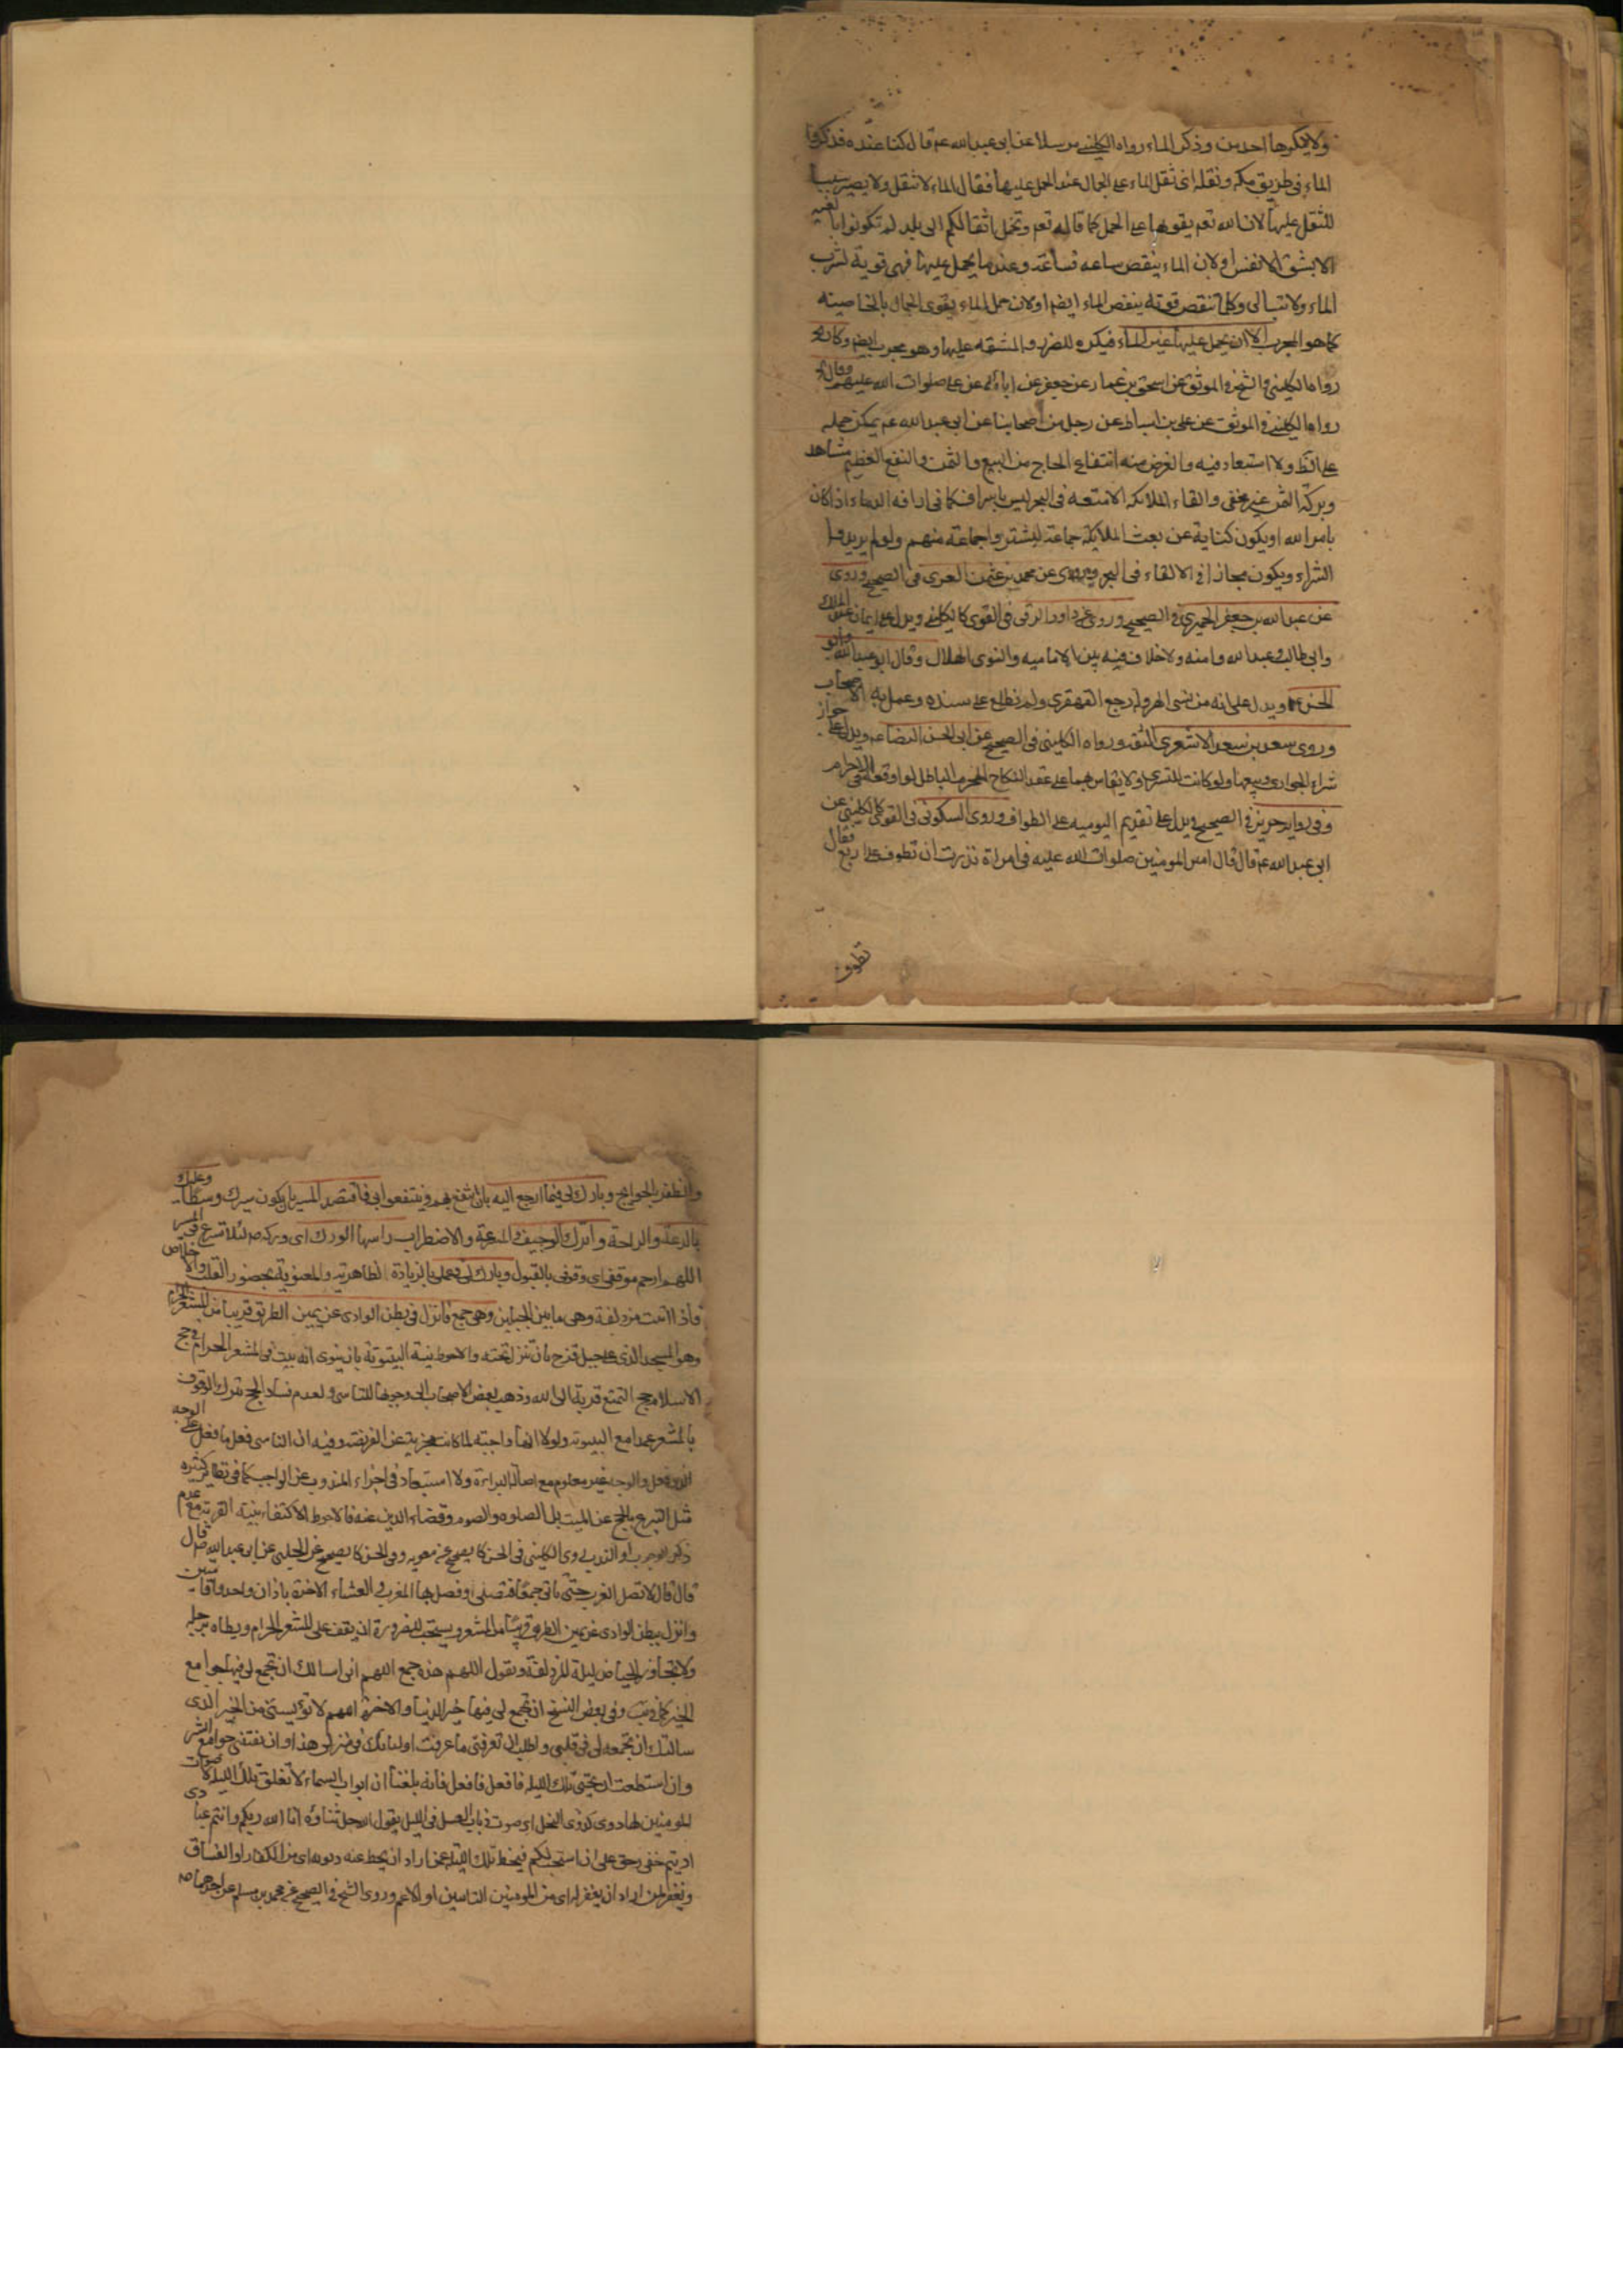 ولا يكرها احد من وذكر الماء رواه الكليني مرسلا عن ابى عبدالله عم قال كنا عنده فذكروا
الماء فى طريق مكه ونقله اى ثقل الماء على الجمال عند الحمل عليها فقال الماء لا تثقل ولا يصير سببا
للثقل عليها لان الله تعم يقويها على الحمل كما قال الله تعم وتحمل اثقالكم الى بلد لم تكونوا بالغيه
الا بشق الانفس اولان الماء ينقص ساعه فساعة وعند ما يحمل عليها فهى قوية لشرب
الماء ولا تبالى وكلما تنقص قوته ينقص الماء ايضم اولان حمل الماء يقوى الجمال بالخاصيته
كما هو المجرب الا ان يحمل عليها غير الماء فيكره للضرر والمشقه عليها وهو مجرب ايضم وكان
رواه الكليني والشيخ فى الموثق عن اسحق بن عمار عن جعفر عن ابائه عن على صلوات الله عليهم وقال
رواه الكليني فى الموثق عن على بن اسباط عن رجل من اصحابنا عن ابى عبدالله عم يمكن حمله
على الظ ولا استبعاد فيه والغرض منه انتفاع الحاج من البيع والثمن والنفع العظيم مشاهد
وبركة الثمن غير مخفى والقاء الملائكه الامتعه فى البحر ليس باسراف كما فى اراقه الدماء اذا كان
بامر الله او يكون كناية عن بعث الملائكه جماعة ليشتروا جماعة منهم ولو لم يريدوا
الشراء ويكون مجازا فى الالقاء فى البحر وروى عن محمد بن عثمن العمرى فى الصحيح وروى
عن عبدالله بن جعفر الحميرى فى الصحيح وروى عن داود الرقى فى القوى كالكليني ويدل على ايمان عبد الملك
وابى طالب وعبدالله وامنه ولا خلاف فيه بين الاماميه والنوى الهلال وقال ابو عبدالله وابو
الحسن عم ويدل على انه من نسى الهروله رجع القهقرى ولم نطلع على سنده وعمل به الاصحاب
وروى سعد بن سعد الاشعرى الثقه ورواه الكليني فى الصحيح عن ابى الحسن الرضا عم ويدل على جواز
شراء الجوارى وبيعها ولو كانت للتسرى ولا يقاس هما على عقد النكاح المحرم الباطل لو اوقعه فى الاحرام
وفى روايه حريز فى الصحيح ويدل على تقديم اليوميه على الطواف وروى السكونى فى القوى كالكليني عن
ابى عبدالله عم قال قال امير المومنين صلوات الله عليه فى امراة نذرت ان تطوف على اربع فقال
تطوف
والظفر بالحوايج وبارك لى فيما ارجع اليه بان انتفع بهم وينتفعوا بى فاقتصد المسير بان يكون سيرك وسطا وعليك
بالدعة والراحة واترك الوجيف والسرعة والاضطراب راسها الورك اى وركه م لئلا تسرع فى السير
اللهم ارحم موقفى اى وقوفى بالقبول وبارك لى فى عملى بالزيادة الظاهرية والمعنوية بحضور القلب والاخلاص
فاذا اتيت مزدلفة وهى ما بين الجبلين وهى جمع فانزل فى بطن الوادى عن يمين الطريق قريبا من المشعر الحرام
وهو المسجد الذى على جبل قزح بان تنزل تحته والاحوط نية البيتوتة بان ينوى انه يبيت فى المشعر الحرام فى حج
الاسلام حج التمتع قربة الى الله وذهب بعض الاصحاب الى وجوبها للتاسى ولعدم فساد الحج بترك الوقوف
بالمشعر عمدا مع البيتوته ولولا انها واجبه لما كانت مجزية عن الفريضة وفيه ان التاسى فعل ما فعل على الوجه
الذى فعل والوجه غير معلوم مع اصالة البراءة ولا استبعاد فى اجزاء المندوب عن الواجب كما فى نظائر كثيره
مثل التبرع بالحج عن الميت بل الصلوه والصوم وقضاء الدين عنه فالاحوط الاكتفاء بنية القربه مع عدم
ذكر الوجوب او الندب روى الكليني فى الحسن كالصحيح عن معويه وفى الحسن كالصحيح عن الحلبى عن ابى عبدالله عم قال
قال قال لا تصل المغرب حتى تاتى جمعا فتصلى وفصل بها المغرب والعشاء الاخرة باذان واحد واقامتين
وانزل ببطن الوادى عن يمين الطريق قريبا من المشعر ويستحب للضرورة ان يقف على المشعر الحرام ويطاه برجله
ولا تتجاوز الحياض ليلة المزدلفة وتقول اللهم هذه جمع اللهم انى اسالك ان تجمع لى فيها جوامع
الخير كما فى يب وفى بعض النسخ ان تجمع لى فيها خير الدنيا والاخرة اللهم لا تؤيسنى من الخير الذى
سالتك ان تجمعه لى فى قلبى واطلب ان تعرفنى ما عرفت اولياءك فى منزلى هذا وان تقينى جوامع الشر
وان استطعت ان تحيى تلك الليله فافعل فافعل فانه بلغنا ان ابواب السماء لا تغلق تلك الليله لاصوات
المومنين لها دوى كدوى النحل اى صوت ذباب العسل فى الليل يقول الله جل ثناؤه انا الله ربكم وانتم عبادى
اديتم حقى وحق على ان استجيب لكم فيحط تلك الليله عمن اراد ان يحط عنه ذنوبه اى من الكفار او الفساق
ويغفر لمن اراد ان يغفر له اى من المومنين التائبين او الاعم وروى الشيخ فى الصحيح عن محمد بن مسلم عن احدهما ص